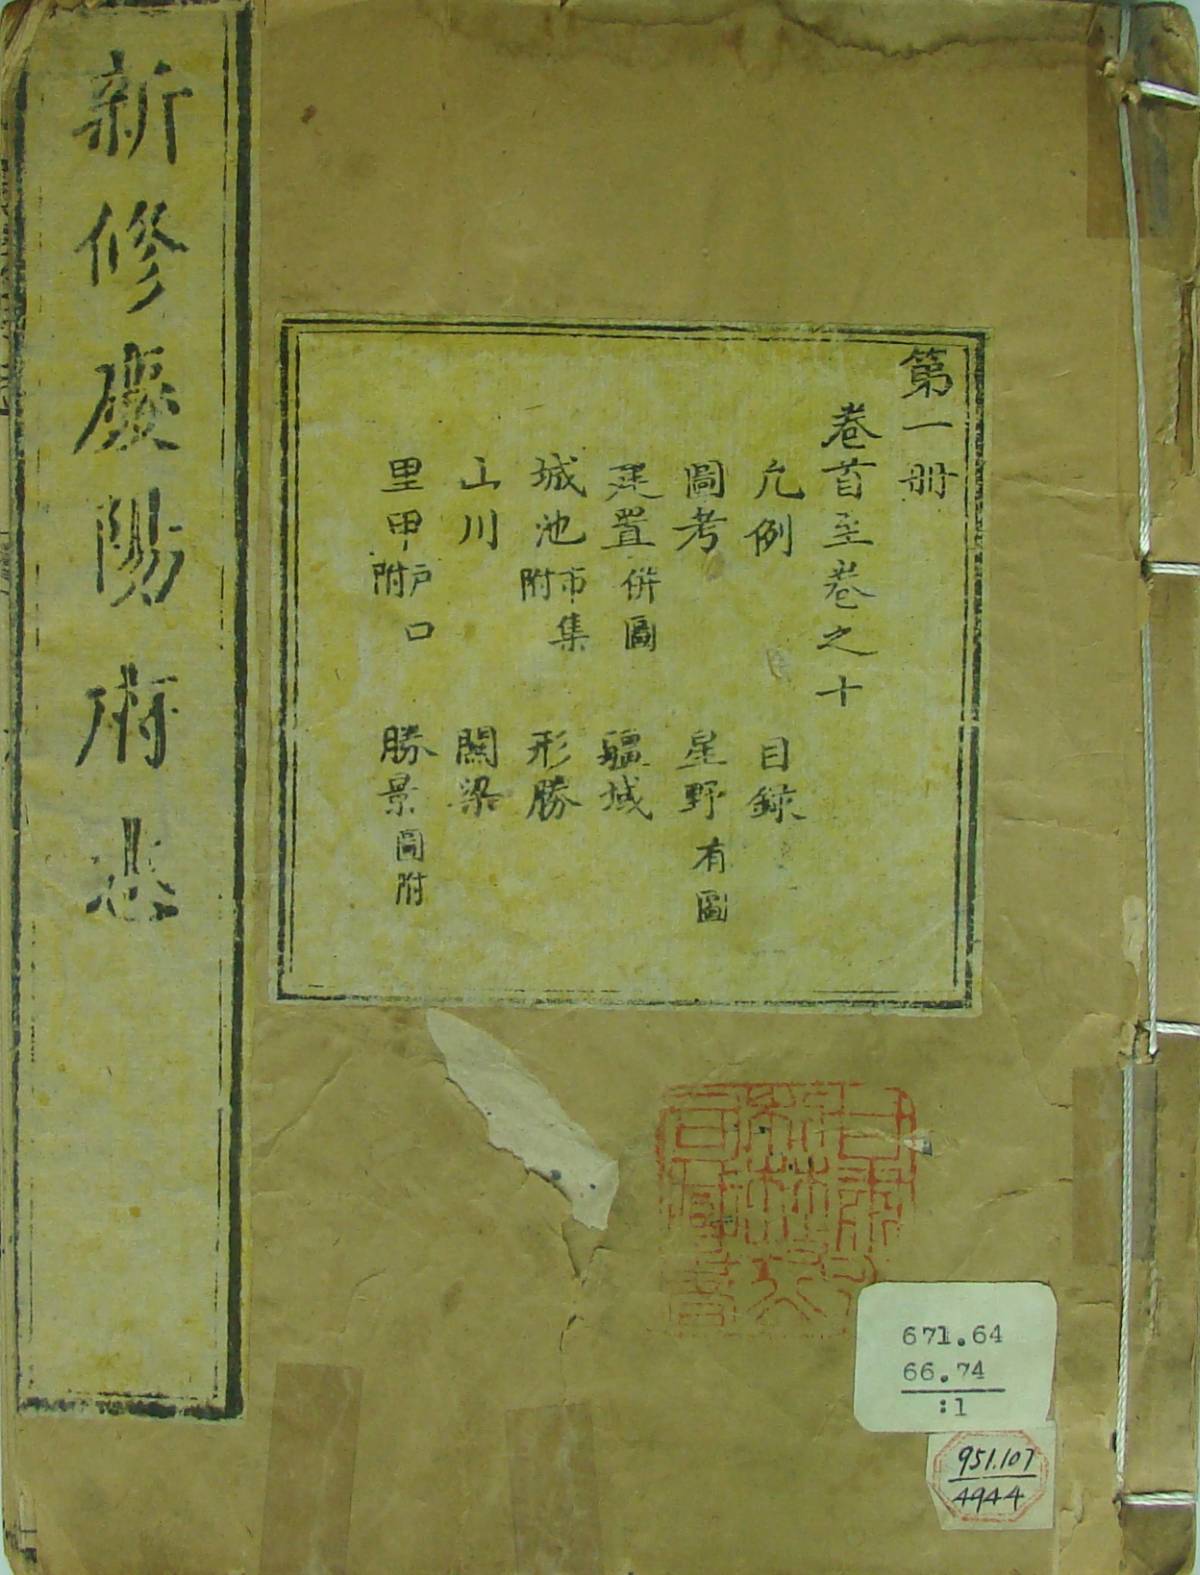 新修慶陽府志
第一册
卷首至卷之十
凡例 目録
圖考 星野有圖
建置併圖 疆域
城池市集附 形勝
山川 關梁
里甲戶口附 勝景圖附
671.64
66.74
:1
951.107
4944